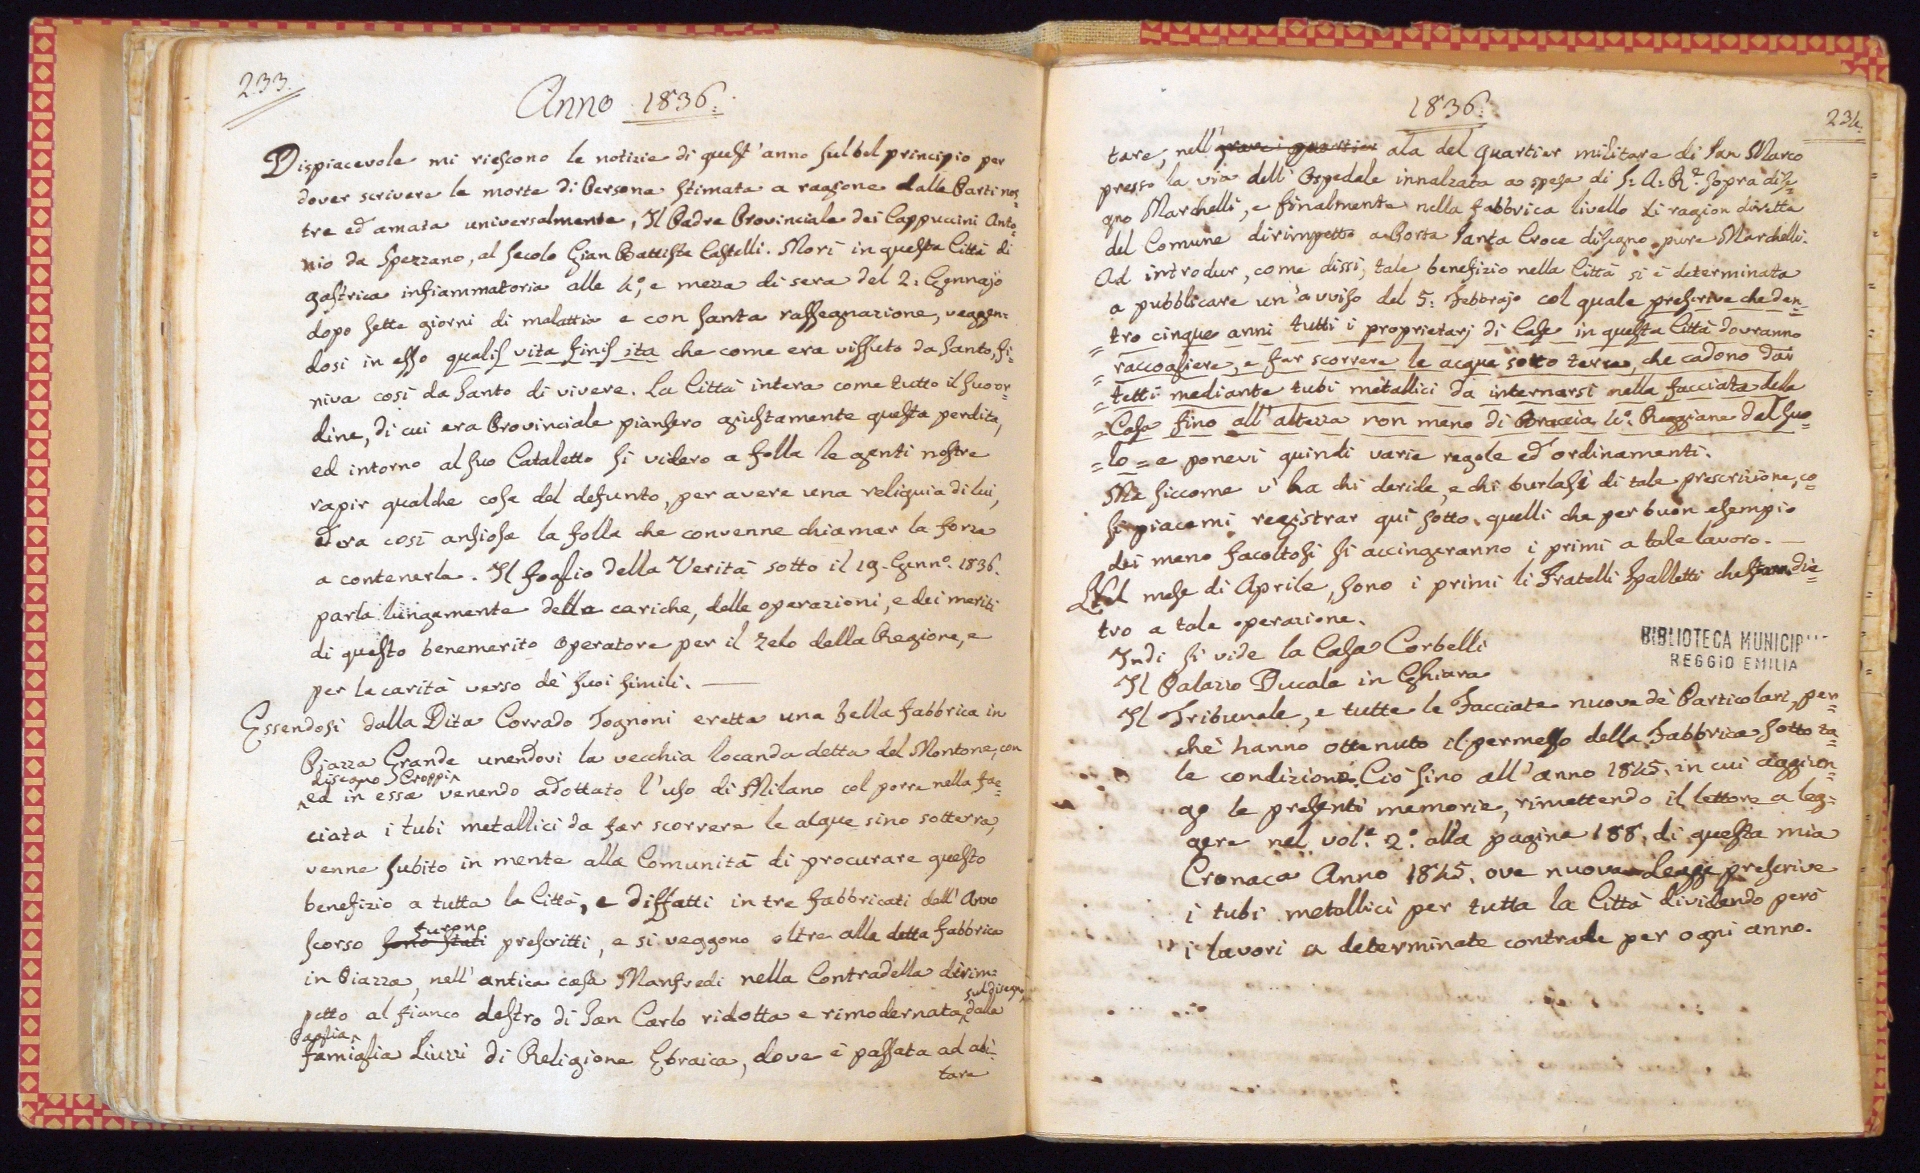 233.
Anno 1836.
Dispiacevole mi riescono le notizie di quest'anno sul bel principio per
dover scrivere la morte di Persona stimata a ragione dalle Parti nos=
tre ed amata universalmente, Il Padre Provinciale dei Cappuccini Anto=
nio da Spezzano, al secolo Gian Battista Castelli. Morì in questa Città di
gastrica infiammatoria alle 4, e mezza di sera del 2: Gennajo
dopo sette giorni di malattia e con santa rassegnazione, veggen=
dosi in esso qualis vita finis ita che come era vissuto da Santo, fi=
niva così da Santo di vivere. La Città intera come tutto il suo or=
dine, di cui era Provinciale piansero giustamente questa perdita,
ed intorno al suo Cataletto si videro a folla le genti nostre
rapir qualche cosa del defunto, per avere una reliquia di lui,
ed era così ansiosa la folla che convenne chiamar la forza
a contenerla. Il foglio della Verità sotto il 19 Genn.º 1836.
parla lungamente delle cariche, delle operazioni, e dei meriti
di questo benemerito operatore per il zelo della Regione, e
per la carità verso de' suoi simili. —
Essendosi dalla Dita Corrado Tognoni eretta una bella fabbrica in
Piazza Grande unendovi la vecchia locanda detta del Montone, con
disegno Croppi
ed in essa venendo adottato l'uso di Milano col porre nella fac=
ciata i tubi metallici da far scorrere le alque sino sotterra,
venne subito in mente alla Comunità di procurare questo
benefizio a tutta la Città, e diffatti in tre fabbricati dell'Anno
scorso sono stati furono prescritti, e si veggono oltre alla detta fabbrica
in Piazza, nell'antica casa Manfredi nella Contradella dirim=
petto al fianco destro di San Carlo ridotta e rimodernata sul disegno dalla
Paglia
famiglia Liuzzi di Religione Ebraica, dove è passata ad abi=
tare
1836.
234.
tare, nell' ala del quartier militare di San Marco
presso la via dell'Ospedale innalzata a spesa di S: A: R. sopra dise=
gno Marchelli, e finalmente nella fabbrica livello di ragion diretta
del Comune dirimpetto a Porta Santa Croce disegno pure Marchelli.
Ad introdur, come dissi, tale benefizio nella Città si è determinata
a pubblicare un'avviso del 5: Febbrajo col quale prescrive che den=
= tro cinque anni tutti i proprietarj di Case in questa Città dovranno
= raccogliere, e far scorrere le acque sotto terra, che cadono dai
= tetti mediante tubi metallici da internarsi nella facciata della
= Casa fino all'altezza non meno di Braccia 4: Reggiane dal suo=
= lo = e ponevi quindi varie regole ed ordinamenti.
Ma siccome v'ha chi deride, e chi burlasi di tale prescrizione, co=
sì piacemi registrar quì sotto quelli che per buon esempio
dei meno facoltosi si accingeranno i primi a tale lavoro. —
Nel mese di Aprile, sono i primi li Fratelli Spalletti che dan die=
tro a tale operazione.
Indi si vide la Casa Corbelli
Il Palazzo Ducale in Ghiara
Il Tribunale, e tutte le Facciate nuove de' Particolari, per=
chè hanno ottenuto il permesso della Fabbrica sotto ta=
le condizione. Ciò sino all'anno 1845. in cui aggiun=
go le presenti memorie, rimettendo il lettore a leg=
gere nel vol.e 2.º alla pagina 188. di questa mia
Cronaca Anno 1845. ove nuova Legge prescrive
i tubi metallici per tutta la Città dividendo però
i lavori a determinate contrade per ogni anno.
BIBLIOTECA MUNICIP
REGGIO EMILIA